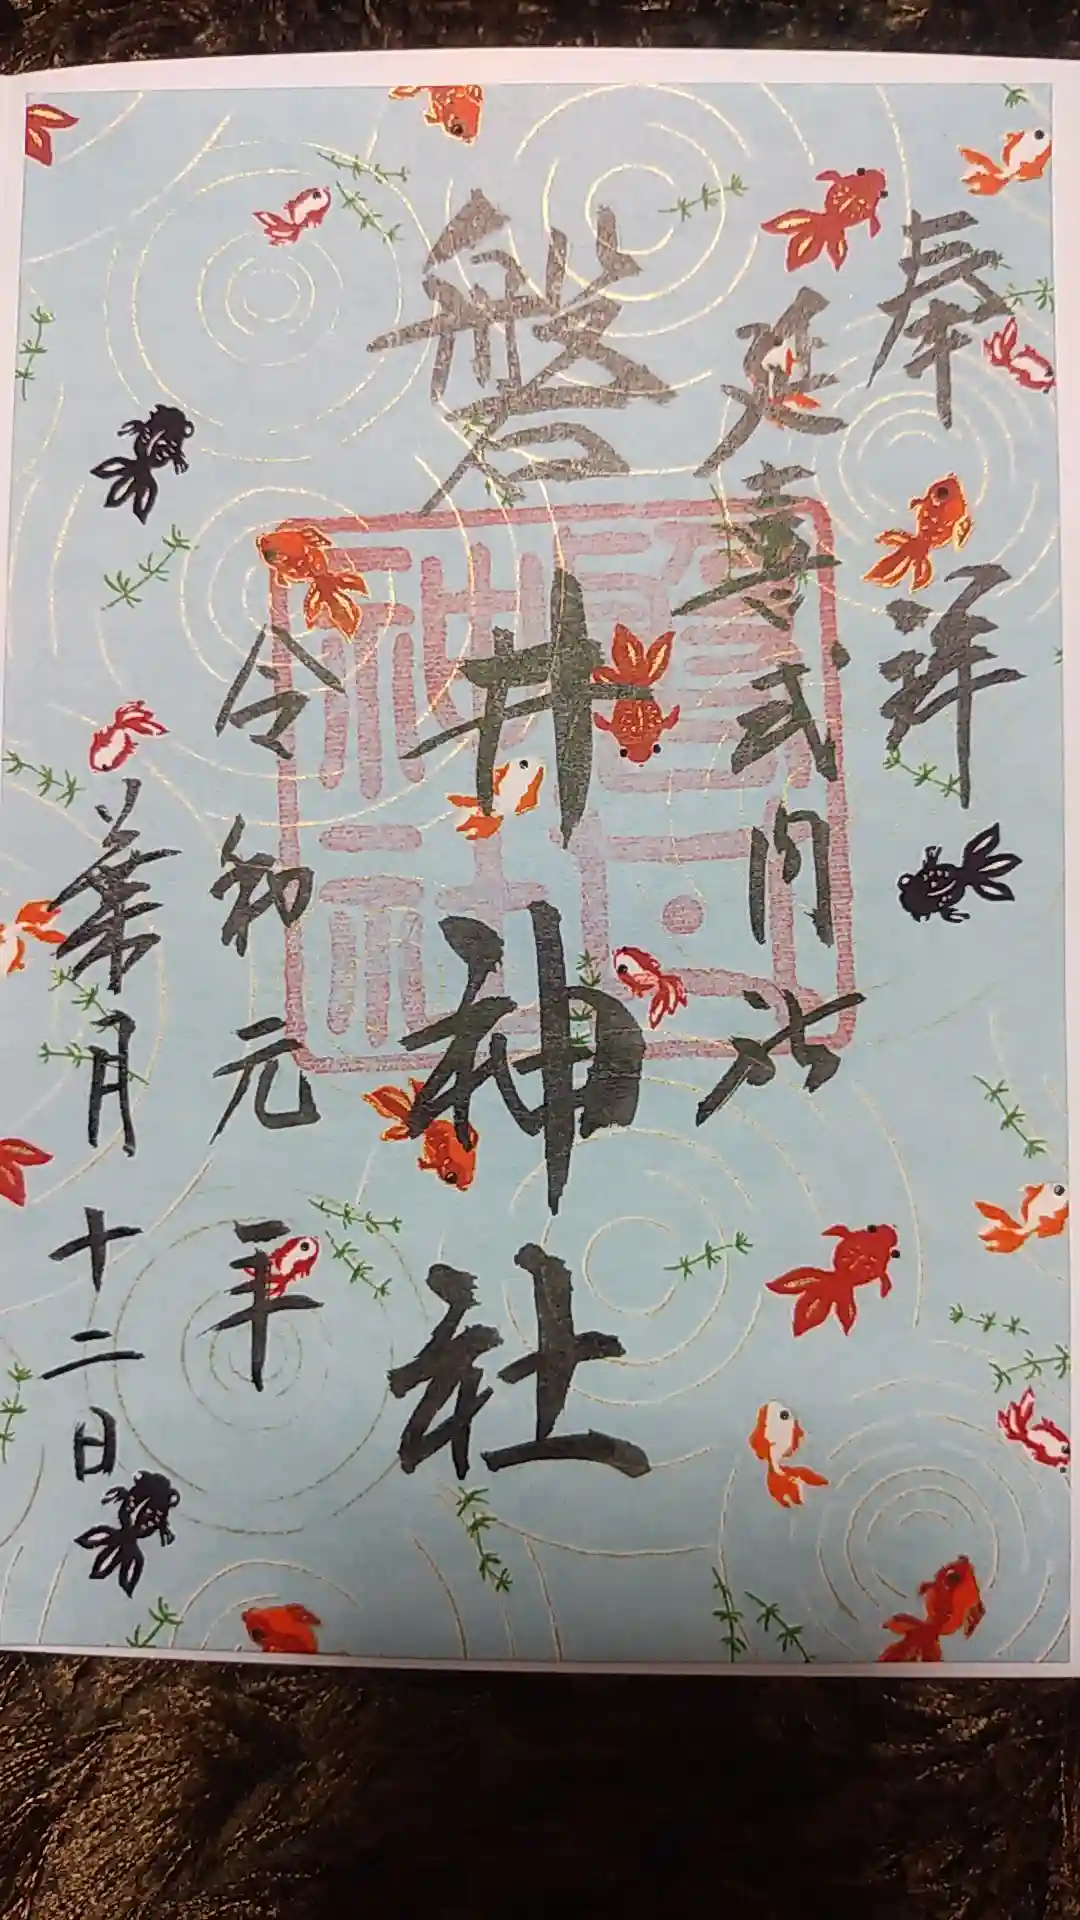 奉拝
延喜式内社
磐井神社
令和元年
葉月十二日
磐井
神社